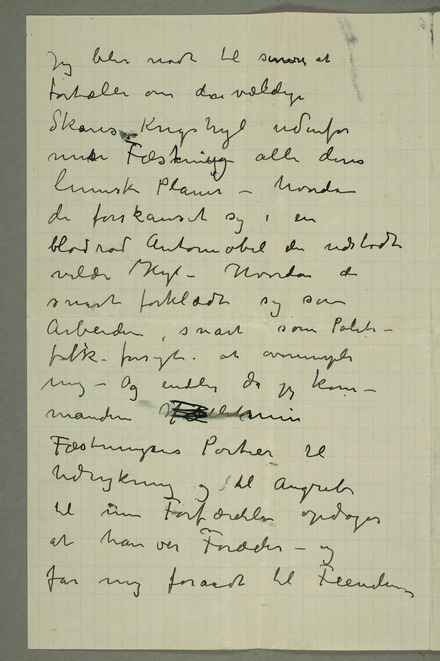 Jeg blev nødt til senere at
fortælle om de vældige
Skares Krigshyl udenfor
min Fæstning alle deres
lumske Planer – hvordan
de forskanset sig i en
blodrød Automobil der udstødte
vilde Hyl – Hvordan de
snart forklædt sig som
Arbeidere, snart som Politi-
folk – forsøgte at overrumple
mig – Og endelig da jeg kom-
manderer min
Fæstnings Portier til
Udrykning og til Angreb
til min Forfærdelse opdager
at han var Forræder – og
har mig forraadt til Fienden